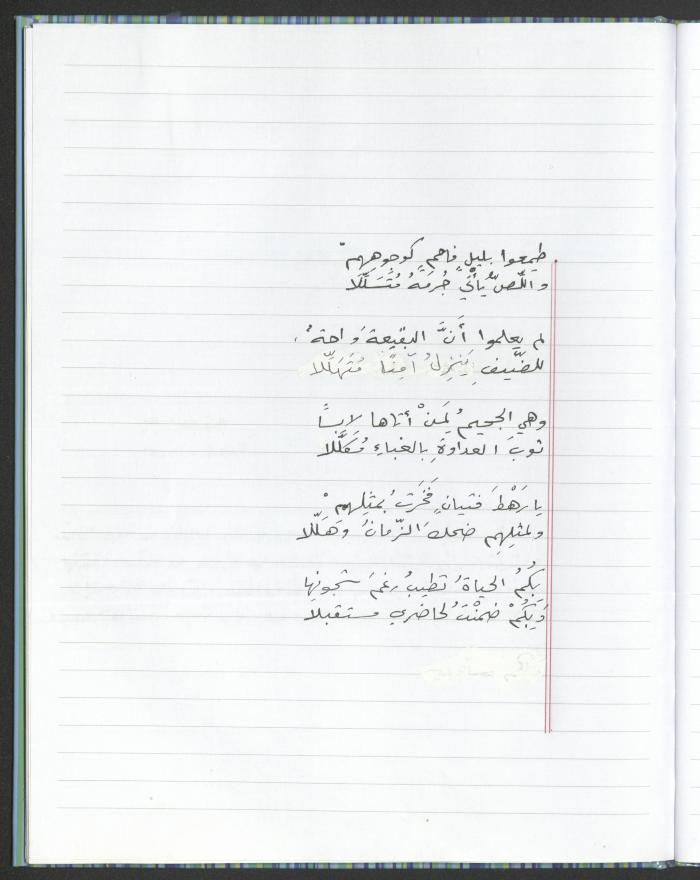 طمعوا بليلٍ فاحمٍ كوجوهِهِمْ
واللّصُّ يأتي جُرمَهُ مُتَسَلِّلَا
لم يعلموا أَنَّ البقيعةَ واحةٌ
للضَّيفِ يَنزِلُ آمِنًا مُتَهَلِّلا
وهي الجحيمُ لِمَنْ أتاها لابِسًا
ثوبَ العداوةِ بالغباءِ مُكَلَّلا
يا رَهْطَ فتيانٍ فَخَرْتُ بمثلِهِمْ
ولمثلِهِم ضحكَ الزّمانُ وَهَلَّلا
بِكُمُ الحياةُ تطيبُ رغمَ شجونِها
وَبِكُمْ ضمنْتُ لحاضري مستقبلا